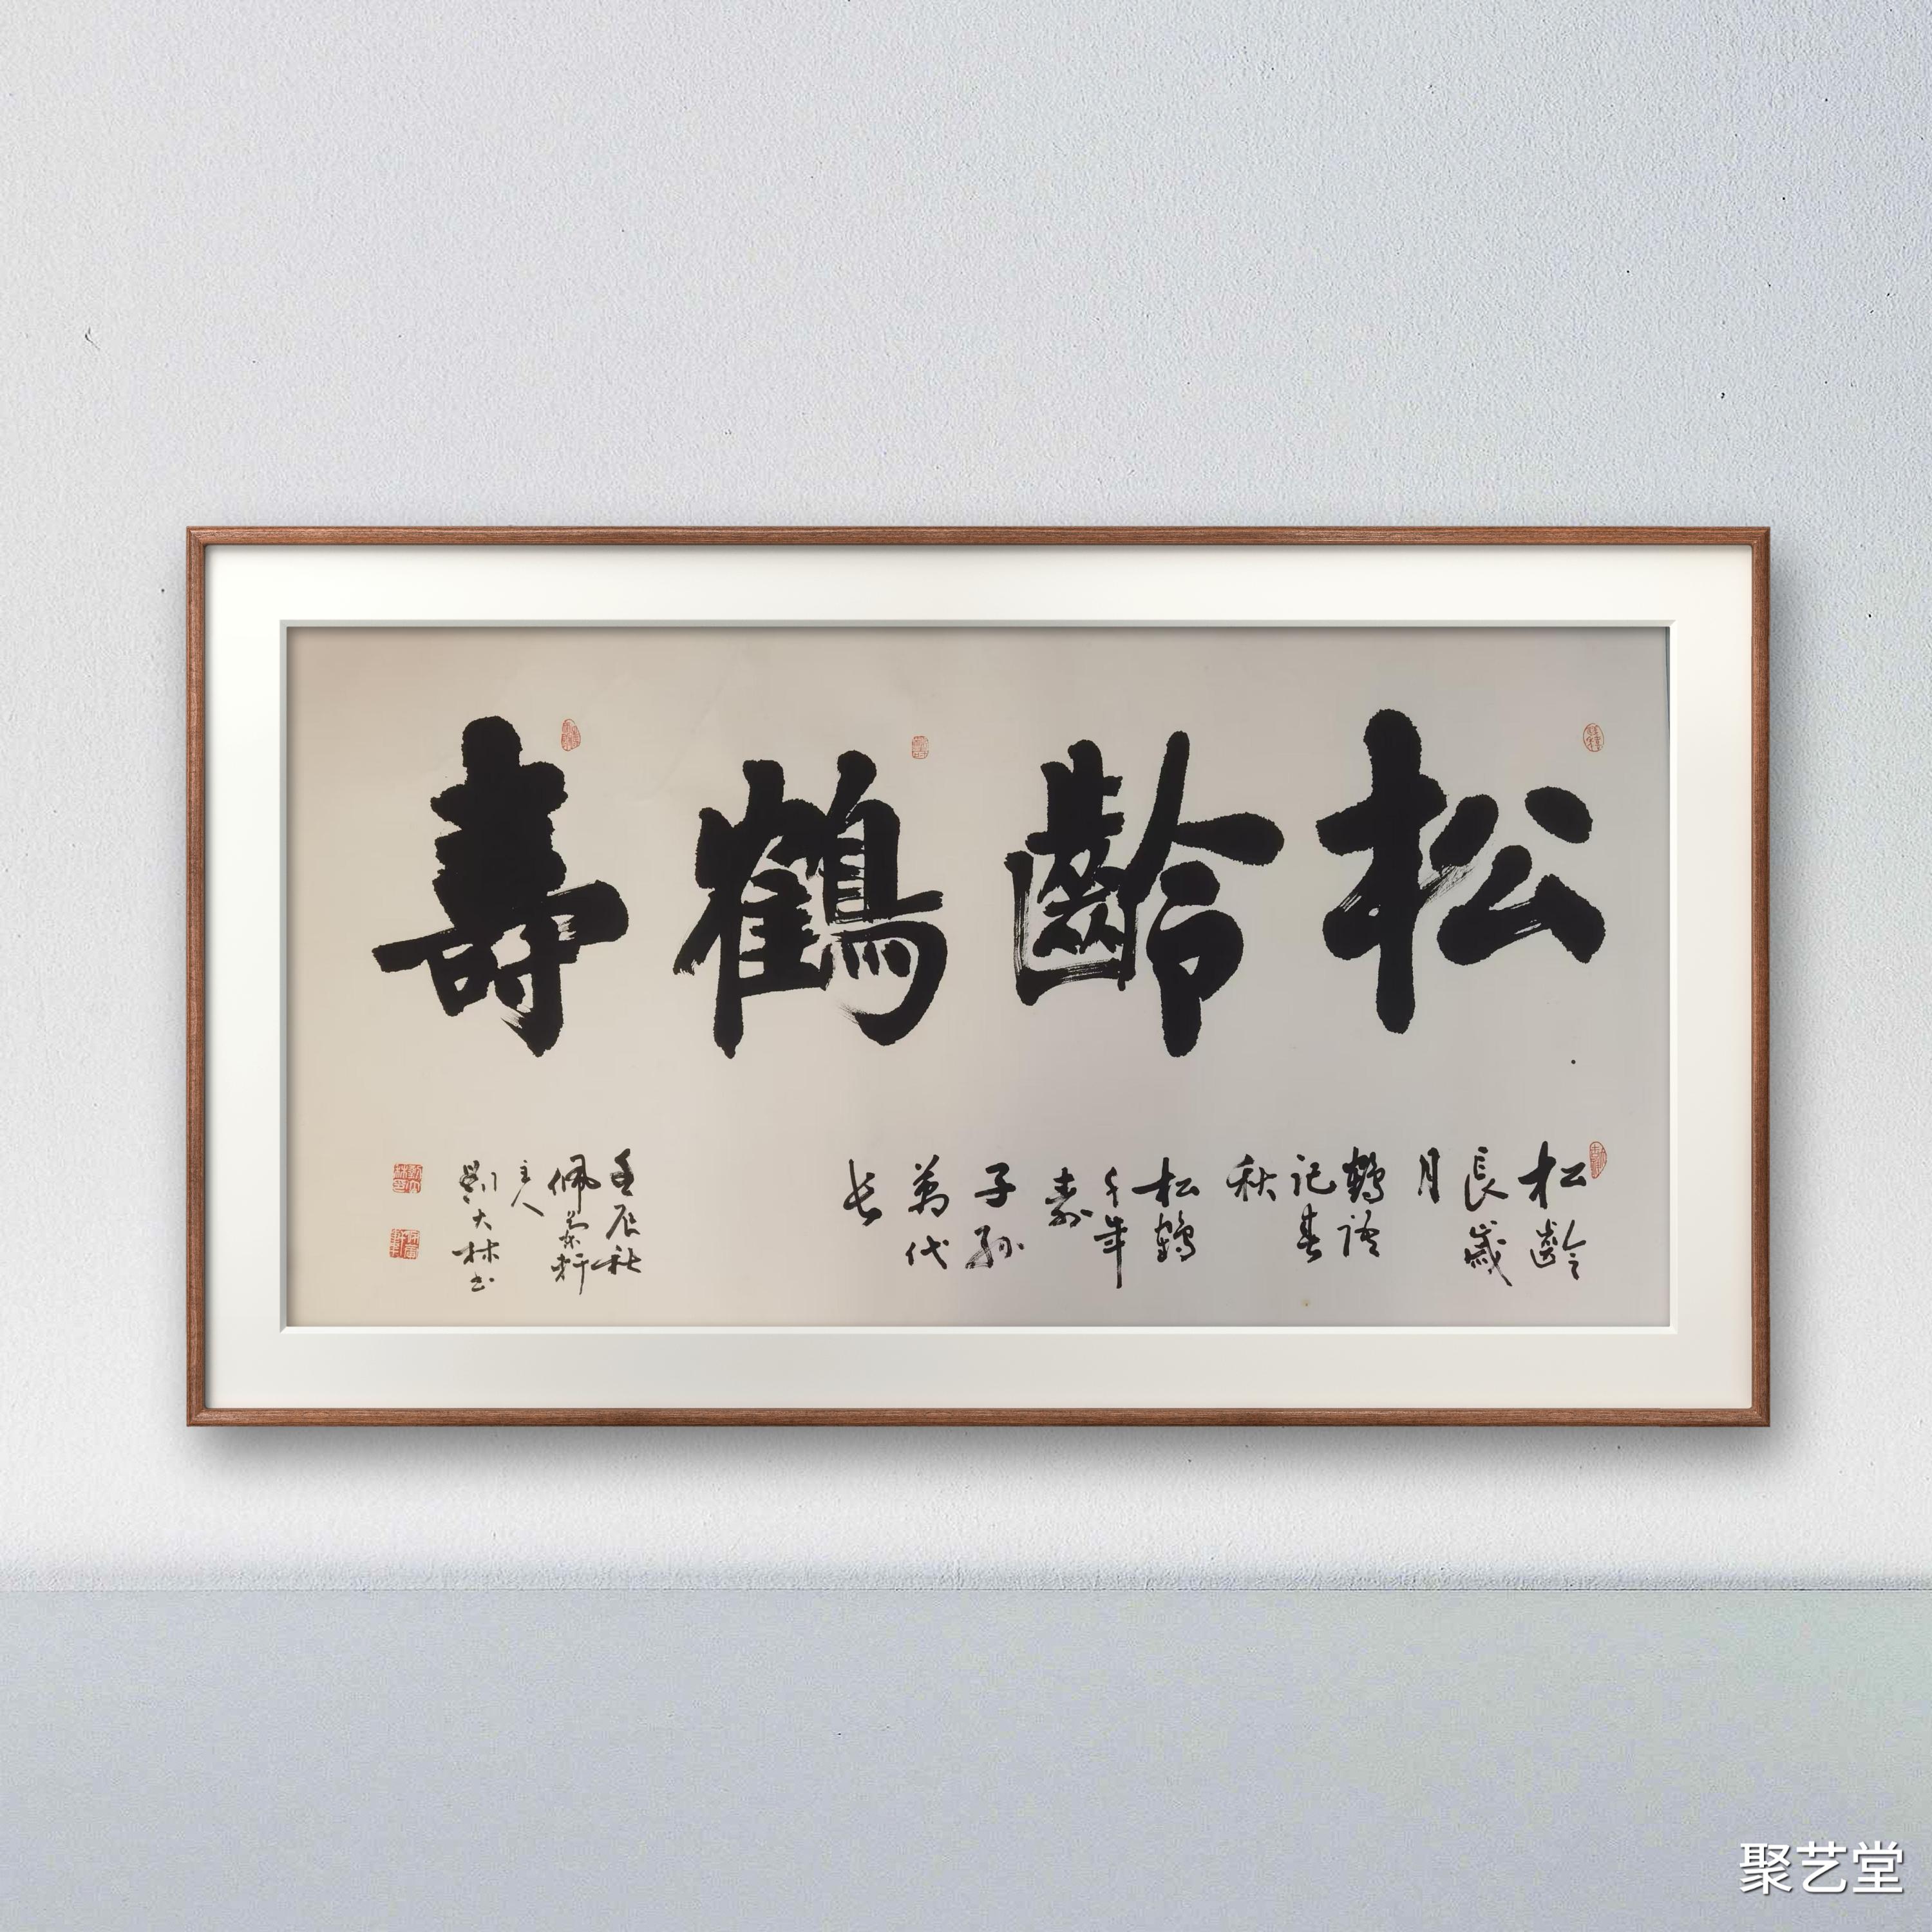 松齡鶴壽
松齡
長歲
月
鶴語
記春
秋
松鶴
千年
壽
子孫
萬代
長
壬辰秋
佩蘭軒
主人
劉大林书
聚艺堂